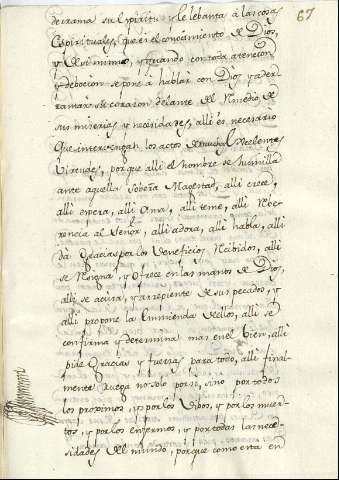 67
derrama su Spiritu y le lebanta à las cosas
Espirituales, que es el conocimiento de Dios,
y de si mismo, y quando con toda atencion
y debocion se pone à hablar con Dios y a der
ramar su corazon delante del Remedio de
sus miserias, y necesidades, alli es necesario
que intervengan los actos de muchas Excelentes
Virtudes, porque alli el hombre se humilla
ante aquella Sobera Magestad, alli cree,
alli espera, alli Ama, alli teme, alli Reve
rencia al Señor, alli adora, alli habla, alli
dà Gracias por los Veneficios Recibidos, alli
se Resigna, y Ofrece en las manos de Dios,
alli se acusa, y arrepiente de sus pecados, y
alli propone la Enmienda dellos, alli se
confirma y determina mas en el bien, alli
pide Gracias y fuerzas para todo, alli final
mente Ruega no solo por si, sino por todos
los proximos, y por los Vibos, y por los muer
tos, y por los enfermos, y por todas las nece
sidades del mundo, porque como esta en